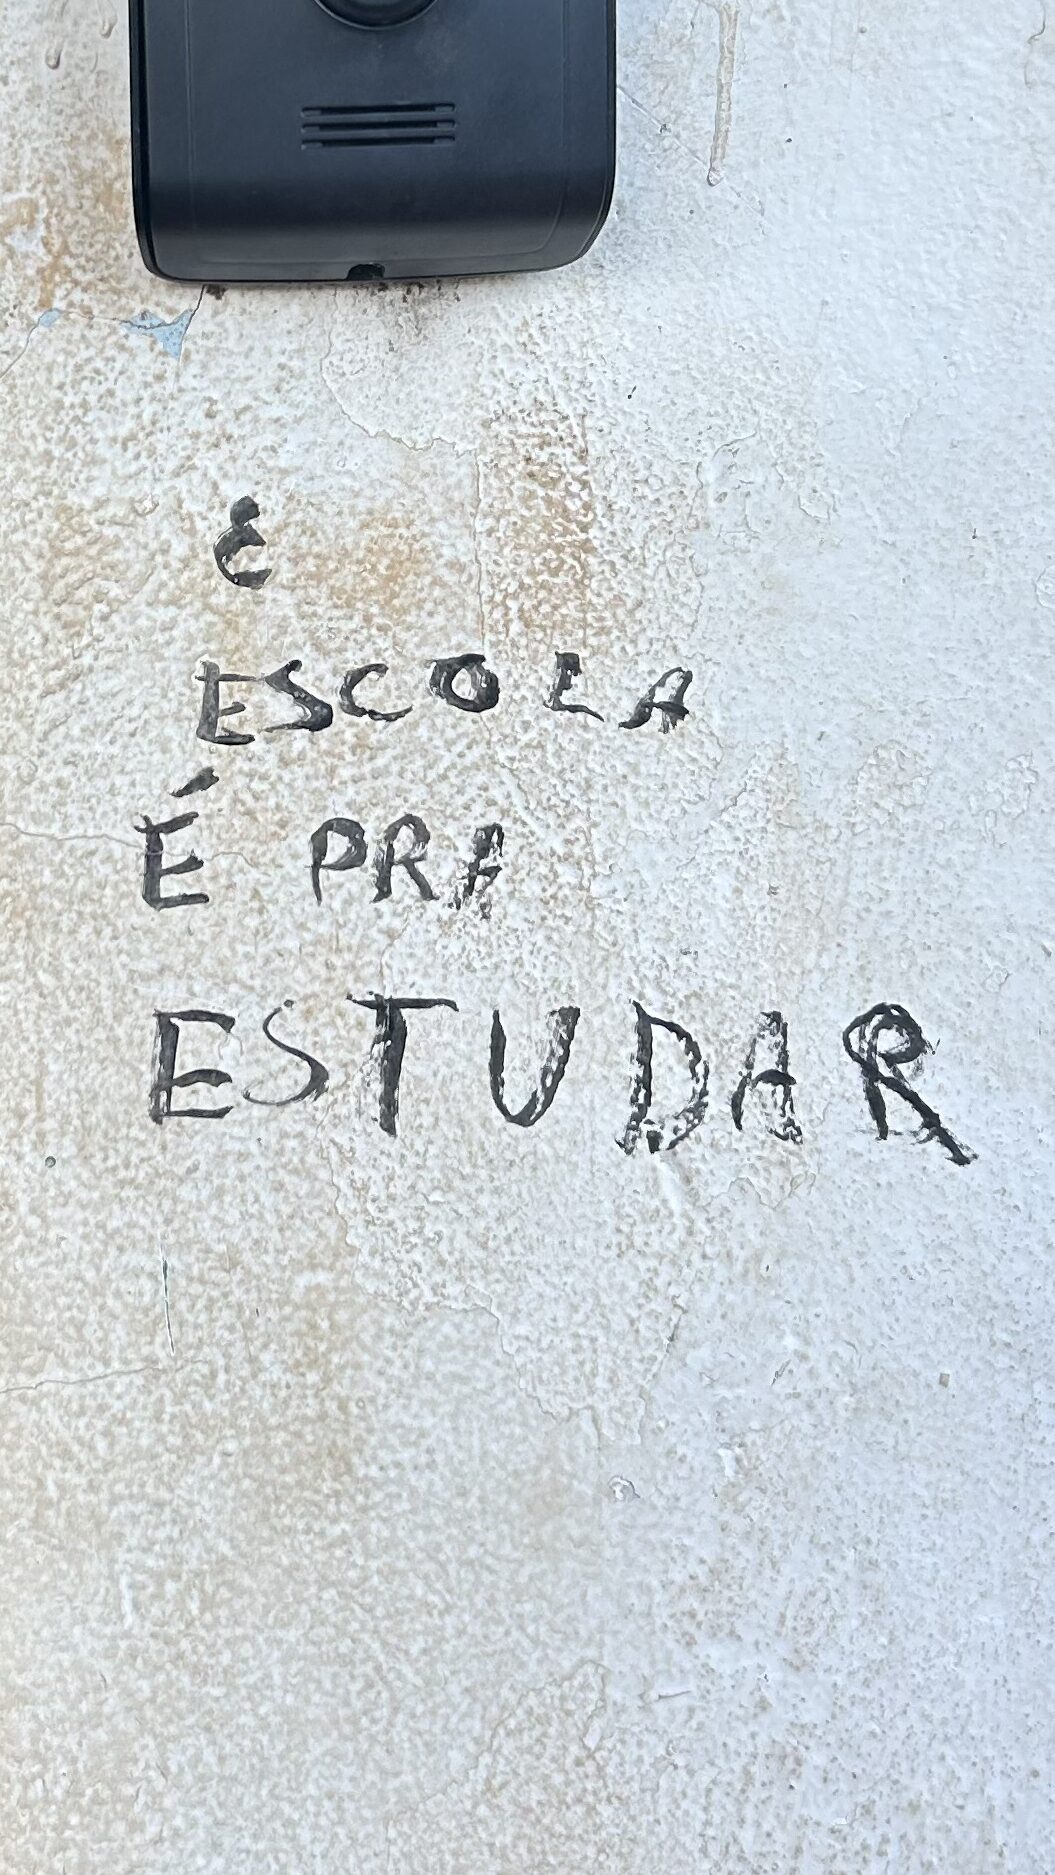 E
ESCOLA
É PRA
ESTUDAR